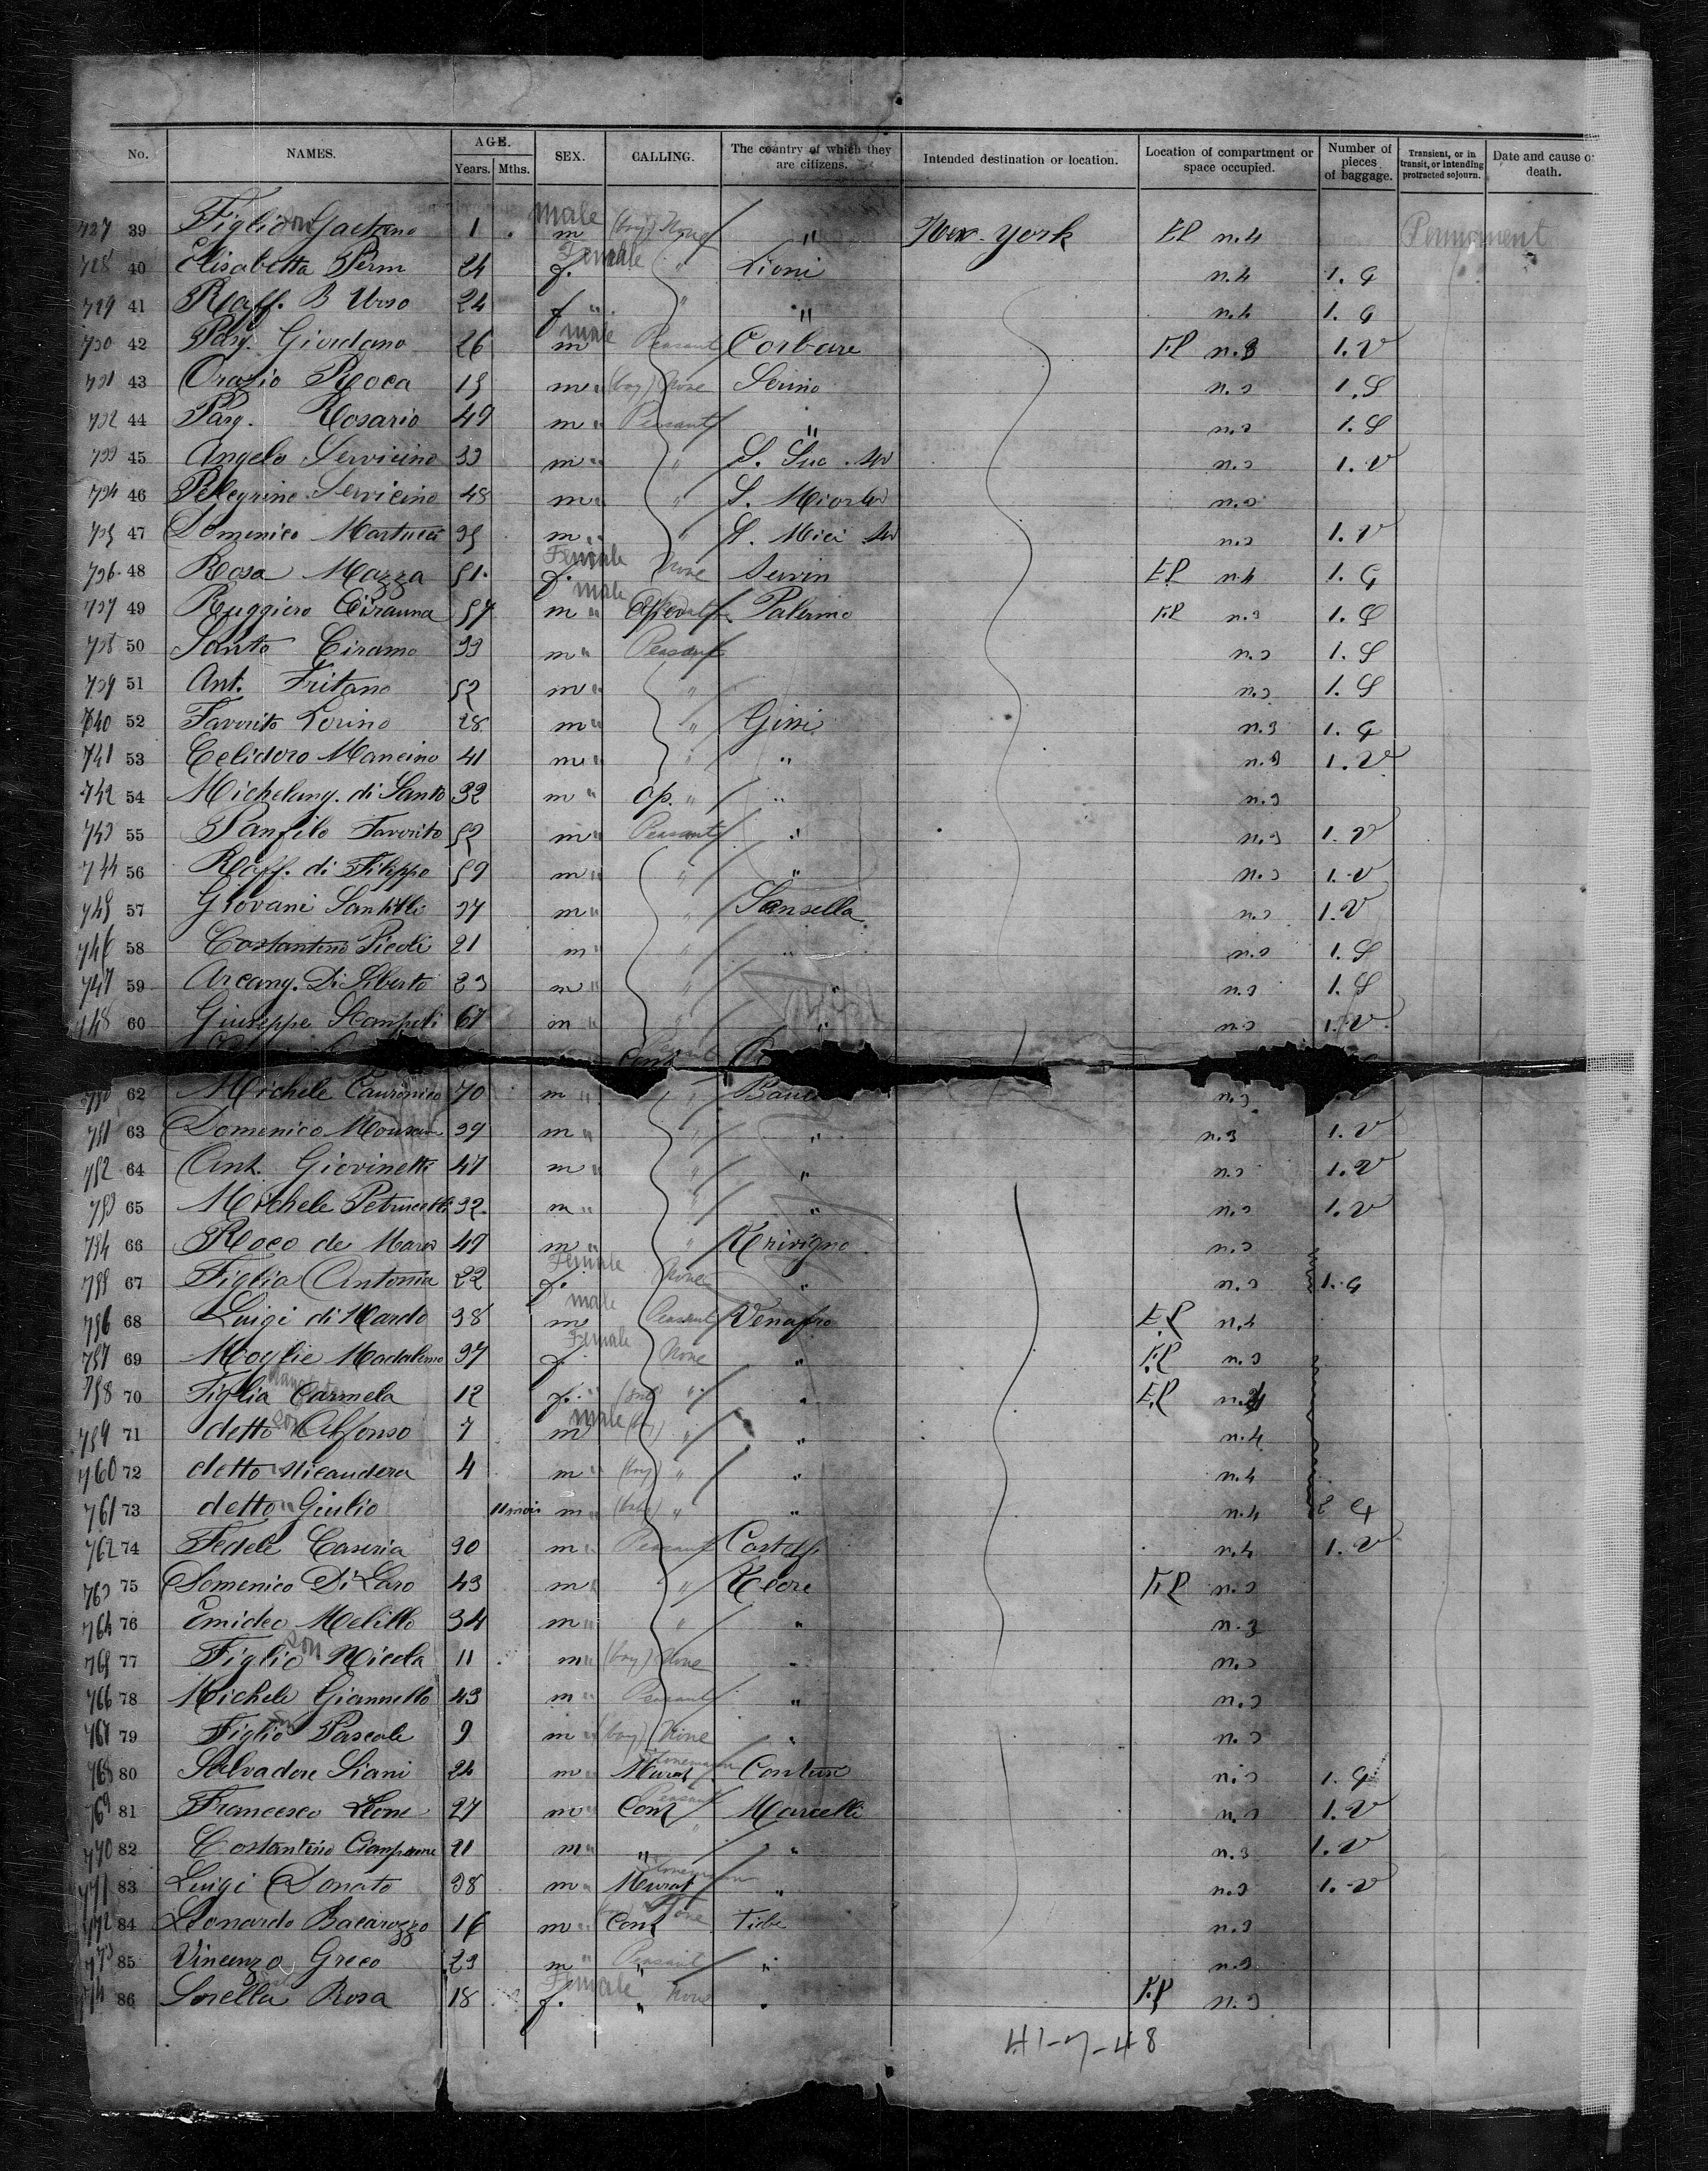 No. NAMES. AGE. Years. Mths. SEX. CALLING. The country of which they are citizens. Intended destination or location. Location of compartment or space occupied. Number of pieces of baggage. Transient, or in transit, or intending protracted sojourn. Date and cause of death.
727 39 Figlio son Gaetano 1 male m (boy) None " New-York EP n.4 Permanent
728 40 Elisabetta Perm 24 Female f. " Lioni n.4 1. G
729 41 Raff. B Urso 24 f " " " n.4 1. G
730 42 Pasq. Giordano 26 male m Peasant Corbare F.P n.3 1. V
731 43 Orazio Roca 15 m " (boy) None Serino n.3 1. S
732 44 Pasq. Rosario 49 m " Peasant " n.3 1. S
733 45 Angelo Servicino 33 m " " n.3 1. V
734 46 Pelegrino Servicino 48 m " " n.3
735 47 Domenico Martucci 35 m " " n.3 1. V
736 48 Rosa Mazza 51 Female f. None Servin E.P n.4 1. G
737 49 Ruggiero Cirauna 57 male m " Palermo F.P n.3 1. S
738 50 Santo Ciramo 33 m " Peasant n.3 1. S
739 51 Ant. Fritano 52 m " " n.3 1. S
740 52 Favorito Lorino 28 m " " Gissi n.3 1. G
741 53 Celidoro Mancino 41 m " " " n.3 1. V
742 54 Michelang. di Santo 32 m " Op. " " n.3
743 55 Panfilo Favorito 52 m " Peasant " n.3 1. V
744 56 Raff. di Filippo 59 m " " " n.3 1. V
745 57 Giovani Santilli 37 m " " Sansella n.3 1. V
746 58 Costantino Picoli 21 m " " " n.3 1. S
747 59 Arcang. Di Liberto 23 m " " " n.3 1. S
748 60 Giuseppe Scampoli 67 m " " " n.3 1. V
Peasant Cont
750 62 Michele Cauronico 70 m " " n.3
751 63 Domenico 39 m " " n.3 1. V
752 64 Ant. Giovinetti 47 m " " " n.3 1. V
753 65 Michele Petrucelli 32 m " " " n.3 1. V
754 66 Roco de Marco 47 m " " Trivigno n.3
755 67 Figlia Antonia 22 Female f. None " n.3 1. G
756 68 Luigi di Nardo 38 male m Peasant Venafro E.P n.4
757 69 Moglie Madalena 37 Female f. None " F.P n.3
758 70 Figlia daughter Carmela 12 f. " " " E.P n.4
759 71 detto son Alfonso 7 male m (boy) " " n.4
760 72 detto " Nicandera 4 m " (boy) " " n.4
761 73 detto " Giulio 11 mois m " (babe) " " n.4 2 G
762 74 Fedele Caseria 30 m " Peasant n.4 1. V
763 75 Domenico Di Laro 43 m " " F.P n.3
764 76 Emideo Melillo 34 m " " " n.3
765 77 Figlio son Nicola 11 m " (boy) None " n.3
766 78 Michele Giannetto 43 m " Peasant " n.3
767 79 Figlio son Pascale 9 m " (boy) None " n.3
768 80 Salvadore Siani 24 m " Murat Stoneman n.3 1. G
769 81 Francesco Leone 27 m " Cont Peasant Marcelli n.3 1. V
770 82 Costantino Ciampaone 21 m " " " n.3 1. V
771 83 Luigi Donato 38 m " Murat Stoneman " n.3 1. V
772 84 Leonardo Bacarozzo 16 m " Cont None n.3
773 85 Vincenzo Greco 23 m " Peasant " " n.3
774 86 Sorella Rosa 18 Female f. " None " F.P n.3
41-7-48